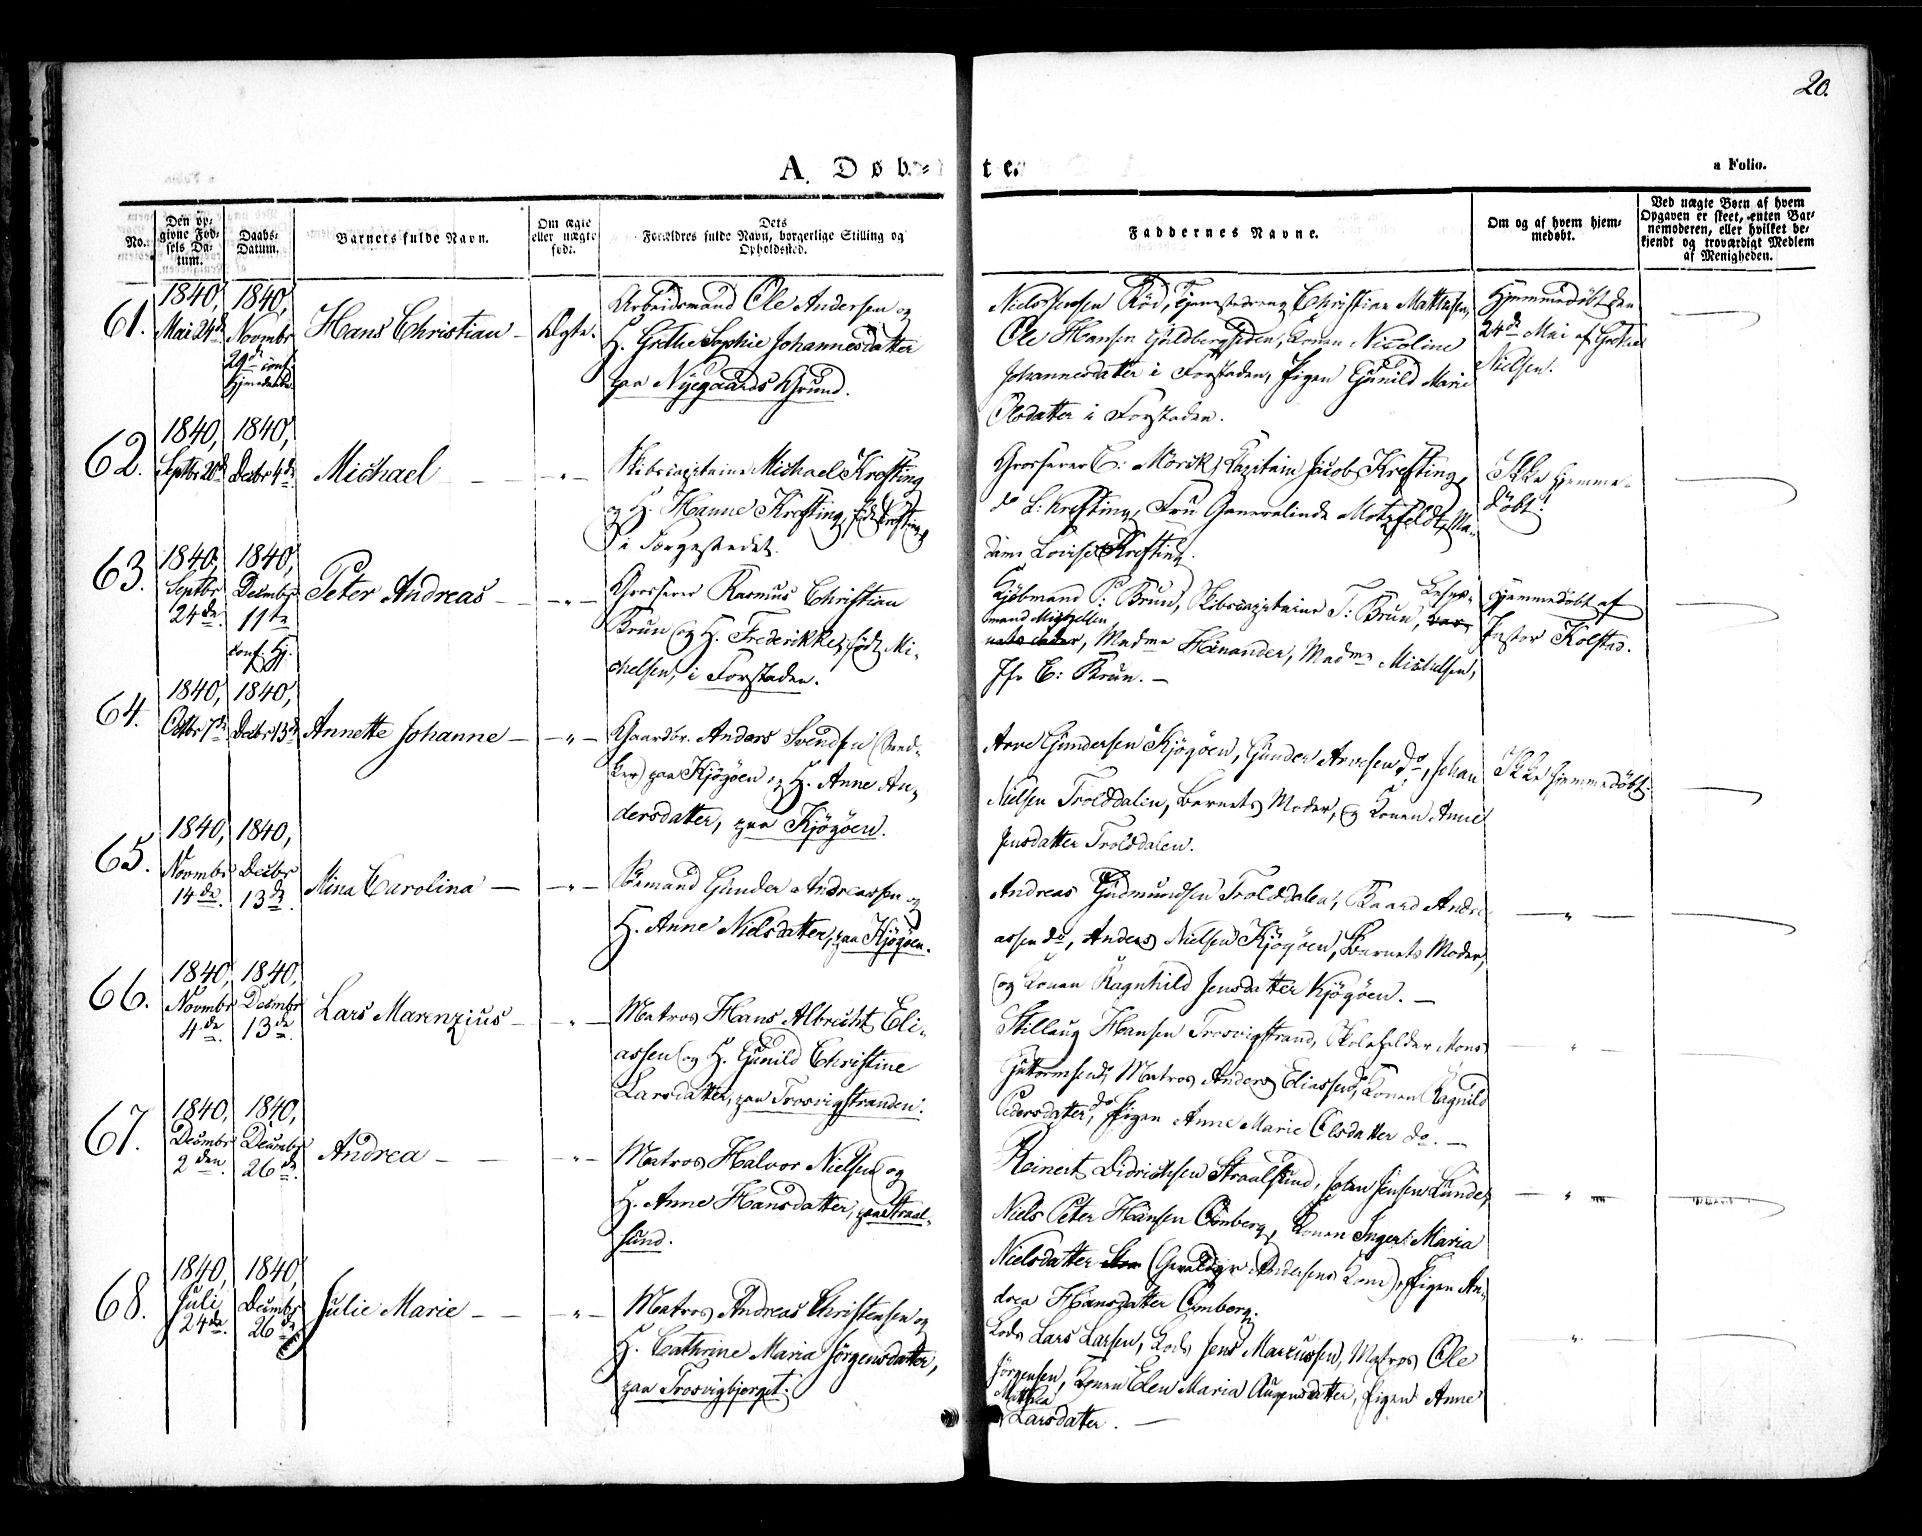 20.
A. Døb-te.
a Folio.
No.
Den op-
givne Fød-
sels Da-
tum.
Daabs-
Datum.
Barnets fulde Navn.
Om ægte
eller uægte
født.
Dets
Forældres fulde Navn, borgerlige Stilling og
Opholdssted.
Faddernes Navne.
Om og af hvem hjem-
medøbt.
Ved uægte Børn af hvem
Opgaven er skeet, enten Bar-
nemoderen, eller hvilket be-
kjendt og troværdigt Medlem
af Menigheden.
61.
1840,
Mai 24de
1840,
Novembr
29de conf.
Hjemedøbt
Hans Christian
Ægte.
Arbeidsmand Ole Andersen og
H. Grethe Sophie Johannesdatter
paa Nyegaards Grund.
Niels Jensen Rød, Tjenestedreng Christian Mathisen,
Ole Hansen Guldbergsiden, Konen Nicoline
Johannesdatter i Forstaden, Pigen Gunild Marie
Olsdatter i Forstaden.
Hjemmedøbt den
24de Mai af
Nielsen.
62.
1840,
Septbr 20de
1840,
Decbr 4de
Michael
Skibscapitaine Michael Krefting
og H. Hanne Krefting, født Krefting
i Torgestedet.
Grosserer C: Mørch, Capitain Jacob Krefting,
do L: Krefting, Fru Generalinde Motzfeldt, Ma-
dame Lovise Krefting.
Ikke hjemme-
døbt!
63.
1840,
Septbr
24de
1840,
Decembr
11te
conf. Hj.
Peter Andreas
Grosserer Rasmus Christian
Brun og H. Frederikke, født Mi-
chelsen, i Forstaden.
Kjøbmand P: Brun, Skibscapitaine T: Brun,
Madme Henander, Madme Michelsen,
Jfr C: Brun.
Hjemmedøbt af
Pastor Kolstad.
64.
1840,
Octbr 7de
1840,
Decbr 13de
Annette Johanne
Gaardbr. Anders Svendsen (Sned-
ker) paa Kjøgøen og H. Anne An-
dersdatter, paa Kjøgøen.
Arve Gundersen Kjøgøen, Gunder Arvesen do, Johan
Nielsen Trolddalen, Barnets Moder, og Konen Anne
Jensdatter Trolddalen.
Ikke hjemmedøbt.
65.
1840,
Novembr
14de
1840,
Decbr
13de
Mina Carolina
Sømand Gunder Andreassen og
H. Anne Nielsdatter, paa Kjøgøen.
Andreas Gudmundsen Trolddalen, Baard Andre-
assen do, Anders Nielsen Kjøgøen, Barnets Moder,
og Konen Ragnhild Jensdatter Kjøgøen.
66.
1840,
Novembr
4de
1840,
Decembr
13de
Lars Marenzius
Matros Hans Albrecht Eli-
assen og H. Gunild Christine
Larsdatter, paa Trosvigstranden.
Stillaug Hansen Trosvigstrand, Skoleholder Mons
Guttormsen, Matros Anders Eliassen, Konen Ragnild
Pedersdatter do, Pigen Anne Marie Olsdatter do.
67.
1840,
Decembr
2den
1840,
Decembr
26de
Andrea
Matros Halvor Nielsen og
H. Anne Hansdatter, paa Straal-
sund.
Reinert Didrichsen Straalsund, Johan Jensen Lunde,
Niels Peter Hansen Cimberg, Konen Inger Maria
Nielsdatter Andersens Kone), Pigen An-
drea Hansdatter Cimberg.
68.
1840,
Juli
24de
1840,
Decembr
26de
Julie Marie
Matros Andreas Christensen og
H. Cathrine Maria Jørgensdatter,
paa Trosvigbjerget.
Lods Lars Larsen, Lods Jens Marcussen, Matros Ole
Jørgensen, Konen Elen Maria Augensdatter, Pigen Anne
Mathea
Larsdatter.